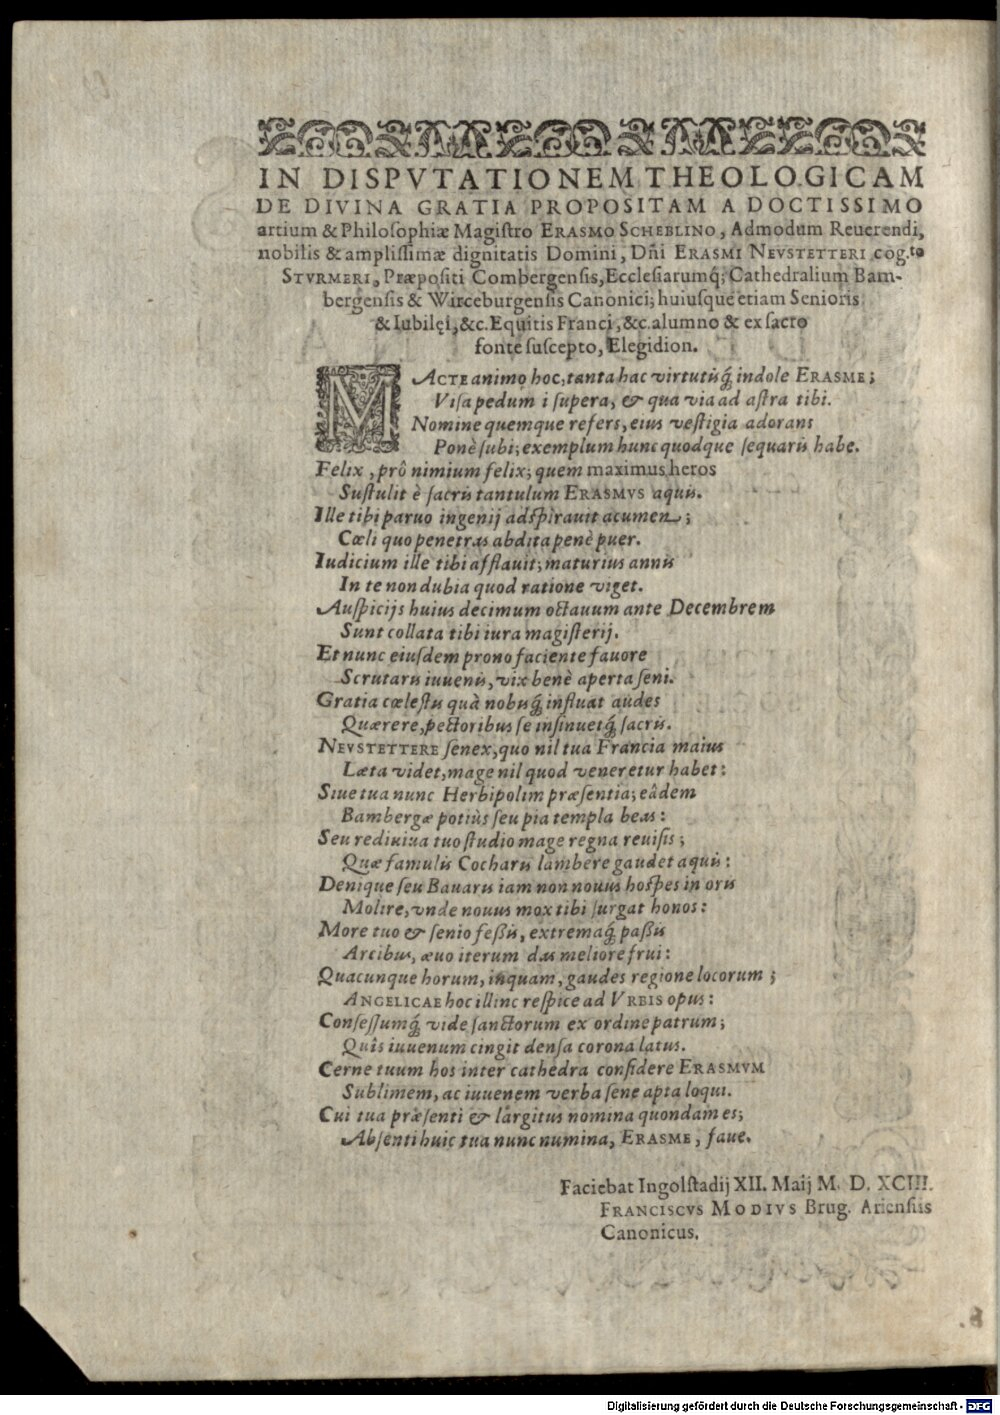 IN DISPVTATIONEM THEOLOGICAM
DE DIVINA GRATIA PROPOSITAM A DOCTISSIMO
artium & Philosophiæ Magistro ERASMO SCHEBLINO, Admodum Reuerendi,
nobilis & amplissimæ dignitatis Domini, Dñi ERASMI NEVSTETTERI cog.to
STVRMERI, Præpositi Combergensis, Ecclesiarumq́; Cathedralium Bam-
bergensis & Wirceburgensis Canonici; huiusque etiam Senioris
& Iubilęi, &c. Equitis Franci, &c. alumno & ex sacro
fonte suscepto, Elegidion.
MACTE animo hoc, tanta hac virtutisq́ indole ERASME;
Visa pedum i supera, & qua via ad astra tibi.
Nomine quemque refers, eius vestigia adorans
Ponè subi; exemplum hunc quodque sequaris habe.
Felix, prô nimium felix; quem maximus heros
Sustulit è sacris tantulum ERASMVS aquis.
Ille tibi paruo ingenij adspirauit acumen;
Cœli quo penetras abdita penè puer.
Iudicium ille tibi afflauit; maturius annis
In te non dubia quod ratione viget.
Auspicijs huius decimum octauum ante Decembrem
Sunt collata tibi iura magisterij.
Et nunc eiusdem prono faciente fauore
Scrutaris iuuenis, vix benè aperta seni.
Gratia cœlestis quà nobisq́ influat audes
Quærere, pectoribus se insinuetq́ sacris.
NEVSTETTERE senex, quo nil tua Francia maius
Læta videt, mage nil quod veneretur habet:
Siue tua nunc Herbipolim præsentia; eâdem
Bambergæ potiùs seu pia templa beas:
Seu rediuiua tuo studio mage regna reuisis;
Quæ famulis Cocharis lambere gaudet aquis:
Denique seu Bauaris iam non nouus hospes in oris
Molire, vnde nouus mox tibi surgat honos:
More tuo & senio feßis, extremaq́ paßis
Arcibus, æuo iterum das meliore frui:
Quacunque horum, inquam, gaudes regione locorum;
ANGELICAE hoc illinc respice ad VRBIS opus:
Consessumq́ vide sanctorum ex ordine patrum;
Quîs iuuenum cingit densa corona latus.
Cerne tuum hos inter cathedra considere ERASMVM
Sublimem, ac iuuenem verba sene apta loqui.
Cui tua præsenti & largitus nomina quondam es;
Absenti huic tua nunc numina, ERASME, faue.
Faciebat Ingolstadij XII. Maij M. D. XCIII.
FRANCISCVS MODIVS Brug. Ariensis
Canonicus.
Digitalisierung gefördert durch die Deutsche Forschungsgemeinschaft - DFG